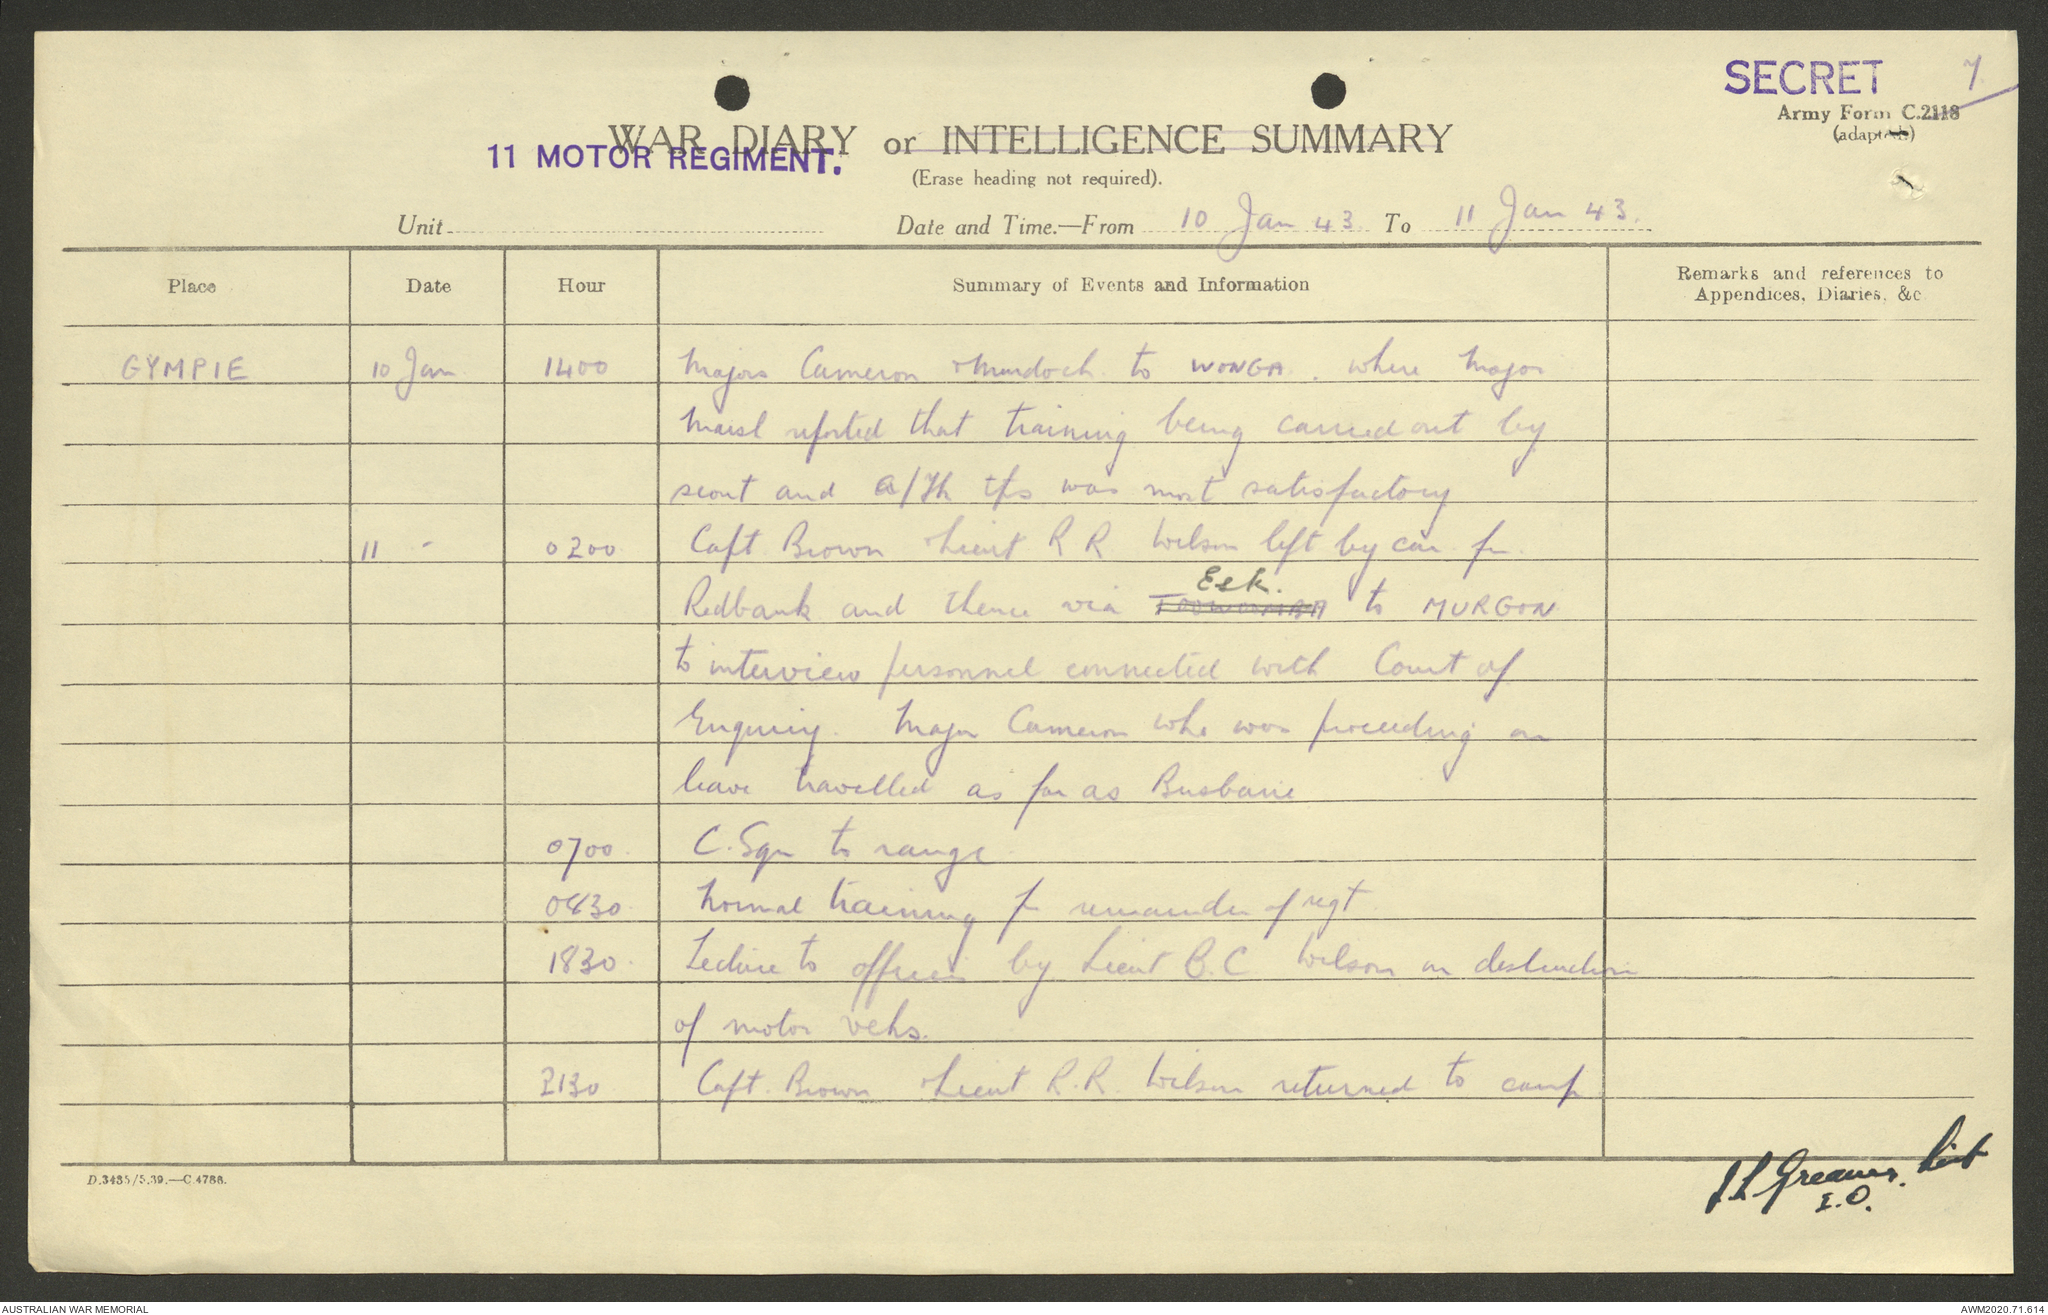 SECRET 7
Army Form C.2118
(adapted)
WAR DIARY or INTELLIGENCE SUMMARY
11 MOTOR REGIMENT.
(Erase heading not required).
Unit Date and Time.—From 10 Jan 43 To 11 Jan 43.
Place Date Hour Summary of Events and Information Remarks and references to
Appendices, Diaries, &c
GYMPIE 10 Jan 1400 Majors Cameron & Murdoch to WONGA. where Major
reported that training being carried out by
scout and A/Tk tps was most satisfactory
11 - 0200 Capt. Brown & Lieut R R Wilson left by car for
Esk.
Redbank and thence via TOOWOOMBA to MURGON
to interview personnel connected with Court of
Enquiry. Major Cameron who was proceeding on
leave travelled as far as Brisbane
0700 C. Sqn to range
0830 Normal training for remainder of regt.
1830 Lecture to officers by Lieut B.C Wilson on destruction
of motor vehs.
2130 Capt. Brown & Lieut R.R. Wilson returned to camp
Greaves. Lieut
I.O.
D.3485/5.39.—C.4788.
AUSTRALIAN WAR MEMORIAL AWM2020.71.614